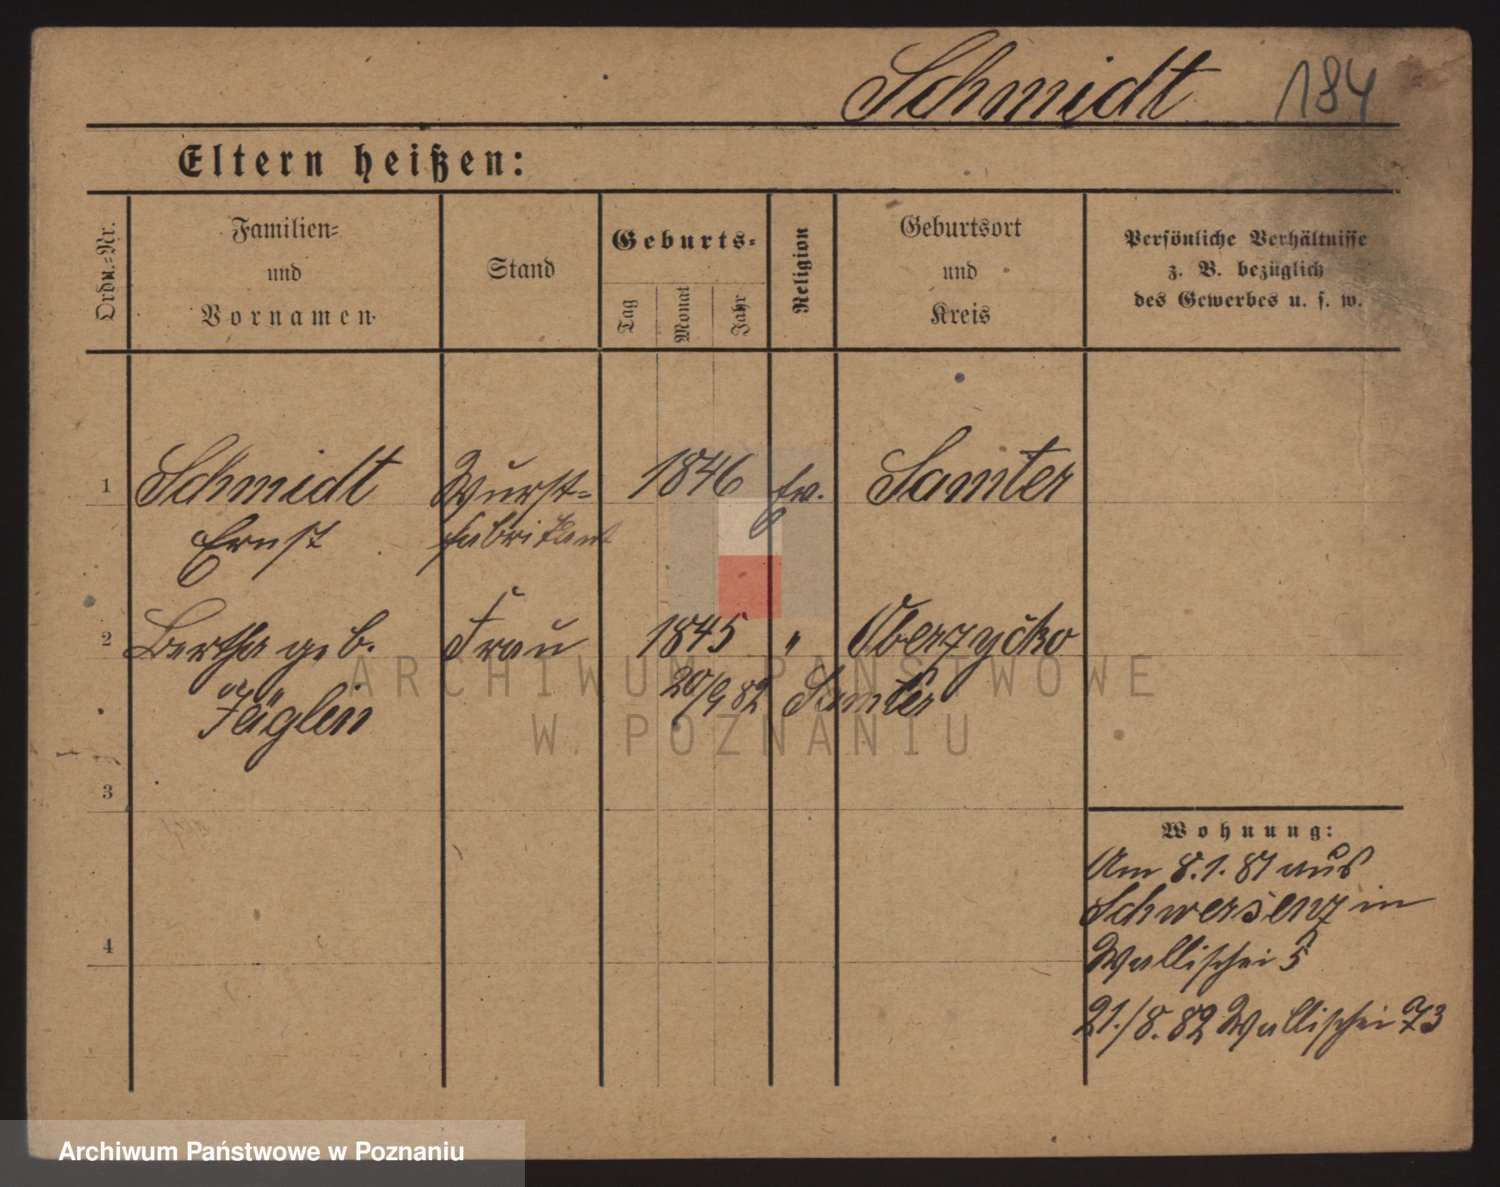 Schmidt 184
Eltern heißen:
Ordn.-Nr.
Familien-
und
Vornamen.
Stand
Geburts-
Tag
Monat
Jahr
Religion
Geburtsort
und
Kreis
Persönliche Verhältnisse
z. B. bezüglich
des Gewerbes u. s. w.
1 Schmidt Wurst- 1846 ev. Samter
Ernst fabrikant
2 Bertha geb. Frau 1845 " Oberzycko
Jäglin 20/9 82 Samter
ARCHIWUM PAŃSTWOWE
W POZNANIU
3
Wohnung:
Am 8.1.81 aus
Schwersenz in
Wallischei 5
4
21./8.82 Wallischei 73
Archiwum Państwowe w Poznaniu